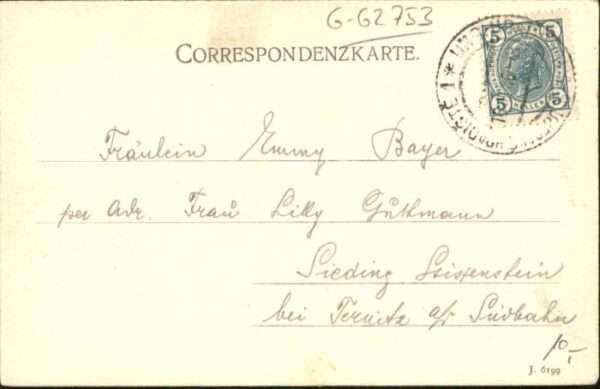 G-G2753
CORRESPONDENZKARTE.
5 5
5 5
HELLER
Fräulein Emmy Bayer
per Adr. Frau Lilly Guttmann
Sieding
bei Ternitz a/s Südbahn
10,-
J. 6199